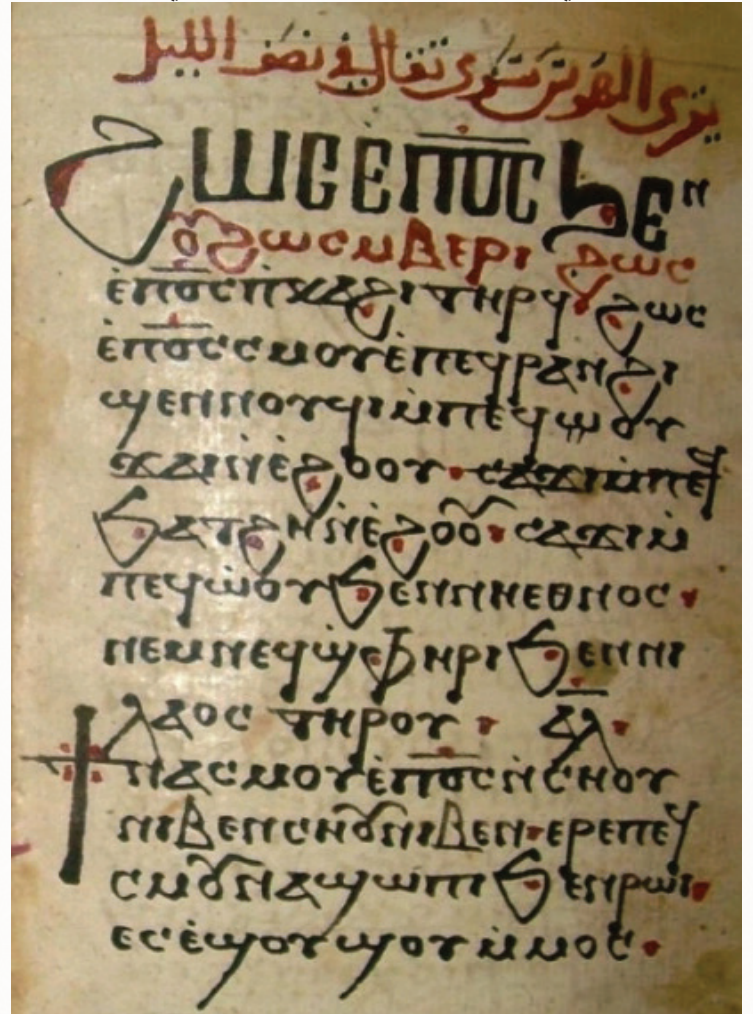 يقرى الهوس شتوى تقال في نصف الليل
ϩⲱⲥ ⲉ̀ⲡⲟ̅ⲥ̅ ϧⲉⲛ
ⲟⲩϩⲱⲥ ⲙⲃⲉⲣⲓ ϩⲱⲥ
ⲉ̀ⲡⲟ̅ⲥ̅ ⲡⲕⲁϩⲓ ⲧⲏⲣϥ ϩⲱⲥ
ⲉ̀ⲡⲟ̅ⲥ̅ ⲥⲙⲟⲩ ⲉ̀ⲡⲉϥⲣⲁⲛ ϩⲓ
ϣⲉⲛⲛⲟⲩϥⲓ ⲙ̀ⲡⲉϥⲱⲟⲩ
ϫⲁⲓ ⲛ̀ⲉ̀ϩⲟⲟⲩ · ⲥⲁϫⲓ ⲙ̀ⲡⲉϥ
ϧⲁⲧϩⲏ ⲛ̀ⲉ̀ϩⲟⲟⲩ · ⲥⲁϫⲓ ⲙ̀
ⲡⲉϥⲱ̀ⲟⲩ ϧⲉⲛ ⲛⲓⲉⲑⲛⲟⲥ ·
ⲛⲉⲙ ⲛⲉϥϣⲫⲏⲣⲓ ϧⲉⲛ ⲛⲓ
ⲗⲁⲟⲥ ⲧⲏⲣⲟⲩ · ⲁ̅ⲗ̅ ·
ϯⲛⲁⲥⲙⲟⲩ ⲉ̀ⲡⲟ̅ⲥ̅ ⲛ̀ⲥⲏⲟⲩ
ⲛⲓⲃⲉⲛ ⲛⲥⲏⲟⲩ ⲛⲓⲃⲉⲛ · ⲉⲣⲉⲡⲉϥ
ⲥⲙⲟⲩ ⲛⲁϣⲱⲡⲓ ϧⲉⲛ ⲣⲱⲓ ·
ⲉⲥⲉ̀ϣⲟⲩϣⲟⲩ ⲙ̀ⲙⲟⲥ ·